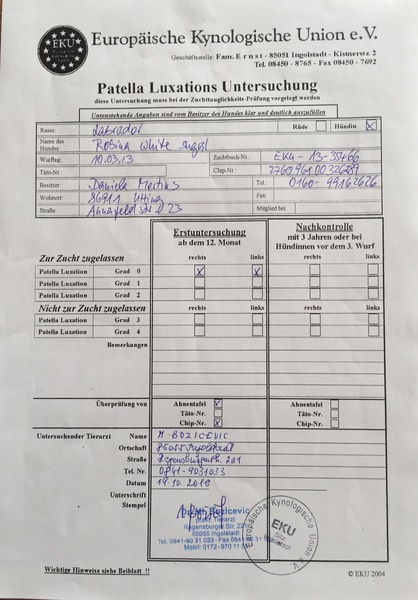 EKU
Europäische Kynologische Union e.V.
Geschäftsstelle: Fam. Ernst - 85051 Ingolstadt - Kistnerstr. 2
Tel. 08450 - 8765 - Fax 08450 - 7692
Patella Luxations Untersuchung
diese Untersuchung muss bei der Zuchttauglichkeits-Prüfung vorgelegt werden
Untenstehende Angaben sind vom Besitzer des Hundes klar und deutlich auszufüllen
Rasse: Labrador Rüde Hündin X
Name des Hundes: Robina white Angel
Wurftag: 10.03.13 Zuchtbuch-Nr. EKU-13-35466
Täto-Nr Chip-Nr.
Besitzer Daniela Tel. 0160-99162626
Wohnort 86911 Fax:
Straße: 23 Mitglied bei
Erstuntersuchung
ab dem 12. Monat
Nachkontrolle
mit 3 Jahren oder bei
Hündinnen vor dem 3. Wurf
Zur Zucht zugelassen rechts links rechts links
Patella Luxation Grad 0 X X
Patella Luxation Grad 1
Patella Luxation Grad 2
Nicht zur Zucht zugelassen rechts links rechts links
Patella Luxation Grad 3
Patella Luxation Grad 4
Bemerkungen
Überprüfung von Ahnentafel X Ahnentafel
Täto-Nr. Täto-Nr.
Chip-Nr. X Chip-Nr.
Untersuchender Tierarzt Name M. BOZICEVIC
Ortschaft 85055 Ingolstadt
Straße Regensburgerstr. 221
Tel. Nr. 0841-9031033
Datum
Unterschrift
Stempel
Bozicevic
prakt. Tierarzt
Regensburger Str. 221
85055 Ingolstadt
Tel. 0841-90 31 033 - Fax 0841-90 31
Mobil: 0172-870 11
Europäische Kynologische Union e.V.
EKU
Sitz
Ingolstadt
Wichtige Hinweise siehe Beiblatt !!
© EKU 2004